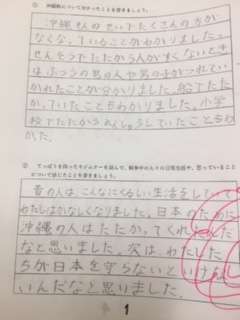 ① 沖縄戦について分かったことを書きましょう。
沖縄せんのせいでたくさんの方が
なくなっていることがわかりました。
せんそうでたたかう人がすくないとき
はふつうの男の人や男の子がつれてい
かれたことが分かりました。船でたた
かっていたことも分かりました。小学
校でたたかうれんしゅうしていたことも分
かった。
② てっぽうを持ったキジムナーを読んで、戦争中の人々の日常生活や、思っていること
について感じたことを書きましょう。
昔の人はこんなにくるしい生活をしていて
わたしはかなしくなりました。日本のために
沖縄の人はたたかってくれたんだ
なと思いました。次はわたした
ちが日本を守らないといけな
いんだなと思いました。
1